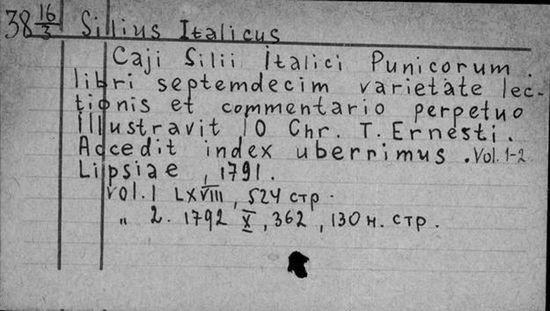 38 16/3 Silius Italicus
Caji Silii Italici Punicorum
libri septemdecim varietate lec-
tionis et commentario perpetuo
illustravit IO Chr. T. Ernesti.
Accedit index uberrimus. Vol. 1-2
Lipsiae, 1791.
Vol. 1 LXVIII, 524 стр.
„ 2. 1792 X, 362, 130 н. стр.